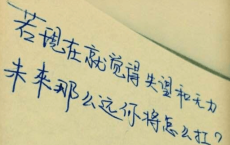 若现在就觉得失望和无力
未来那么远你将怎么扛？